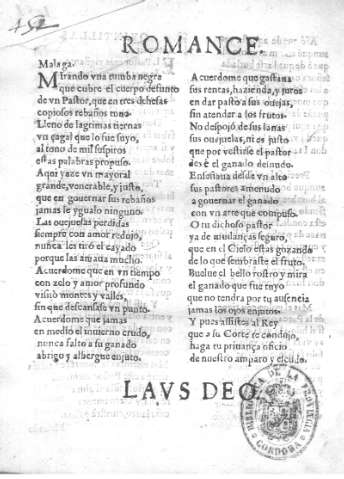 452
ROMANCE.
Malaga.
Mirando vna tumba negra
que cubre el cuerpo defunto
de vn Pastor, que en tres dehesas
copiosos rebaños tuuo.
Lleno de lagrimas tiernas
vn çagal que lo fue suyo,
al tono de mil suspiros
estas palabras propuso.
Aqui yaze vn mayoral
grande, venerable, y justo,
que en gouernar sus rebaños
jamas le ygualo ninguno.
Las ouejuelas perdidas
siempre con amor redujo,
nunca les tirò el cayado
porque las amaua mucho.
Acuerdome que en vn tiempo
con zelo y amor profundo
visitò montes y valles,
sin que descansasse vn punto.
Acuerdome que jamas
en medio el inuierno crudo,
nunca falto a su ganado
abrigo y albergue enjuto.
Acuerdome que gastaua
sus rentas, hazienda, y juros
en dar pasto a sus ouejas,
sin atender a los frutos.
No despojò de sus lanas
sus ouejuelas, ni es justo
que por vestirse el pastor
dexe el ganado desnudo.
Enseñaua desde vn alto
sus pastores amenudo
a gouernar el ganado
con vn arte que compuso.
O tu dichoso pastor
ya de mudanças seguro,
que en el Cielo estas gozando
de lo que sembraste el fruto.
Buelue el bello rostro y mira
el ganado que fue tuyo
que no tendra por tu ausencia
jamas los ojos enjutos.
Y pues assistes al Rey
que a su Corte te condujo,
haga tu priuança oficio
de nuestro amparo y escudo.
LAVS DEO.
BIBLIOTECA DE LA PROVINCIA
CORDOBA